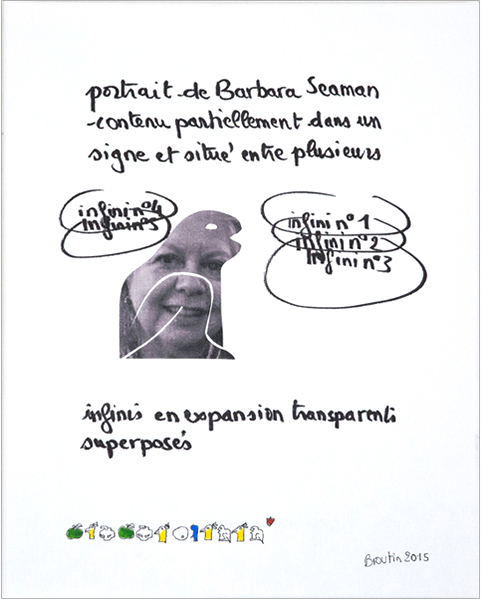 portrait de Barbara Seaman
contenu partiellement dans un
signe et situé entre plusieurs
infini n°4
infini n°5
infini n°1
infini n°2
infini n°3
infinis en expansion transparents
superposés
Broutin 2015